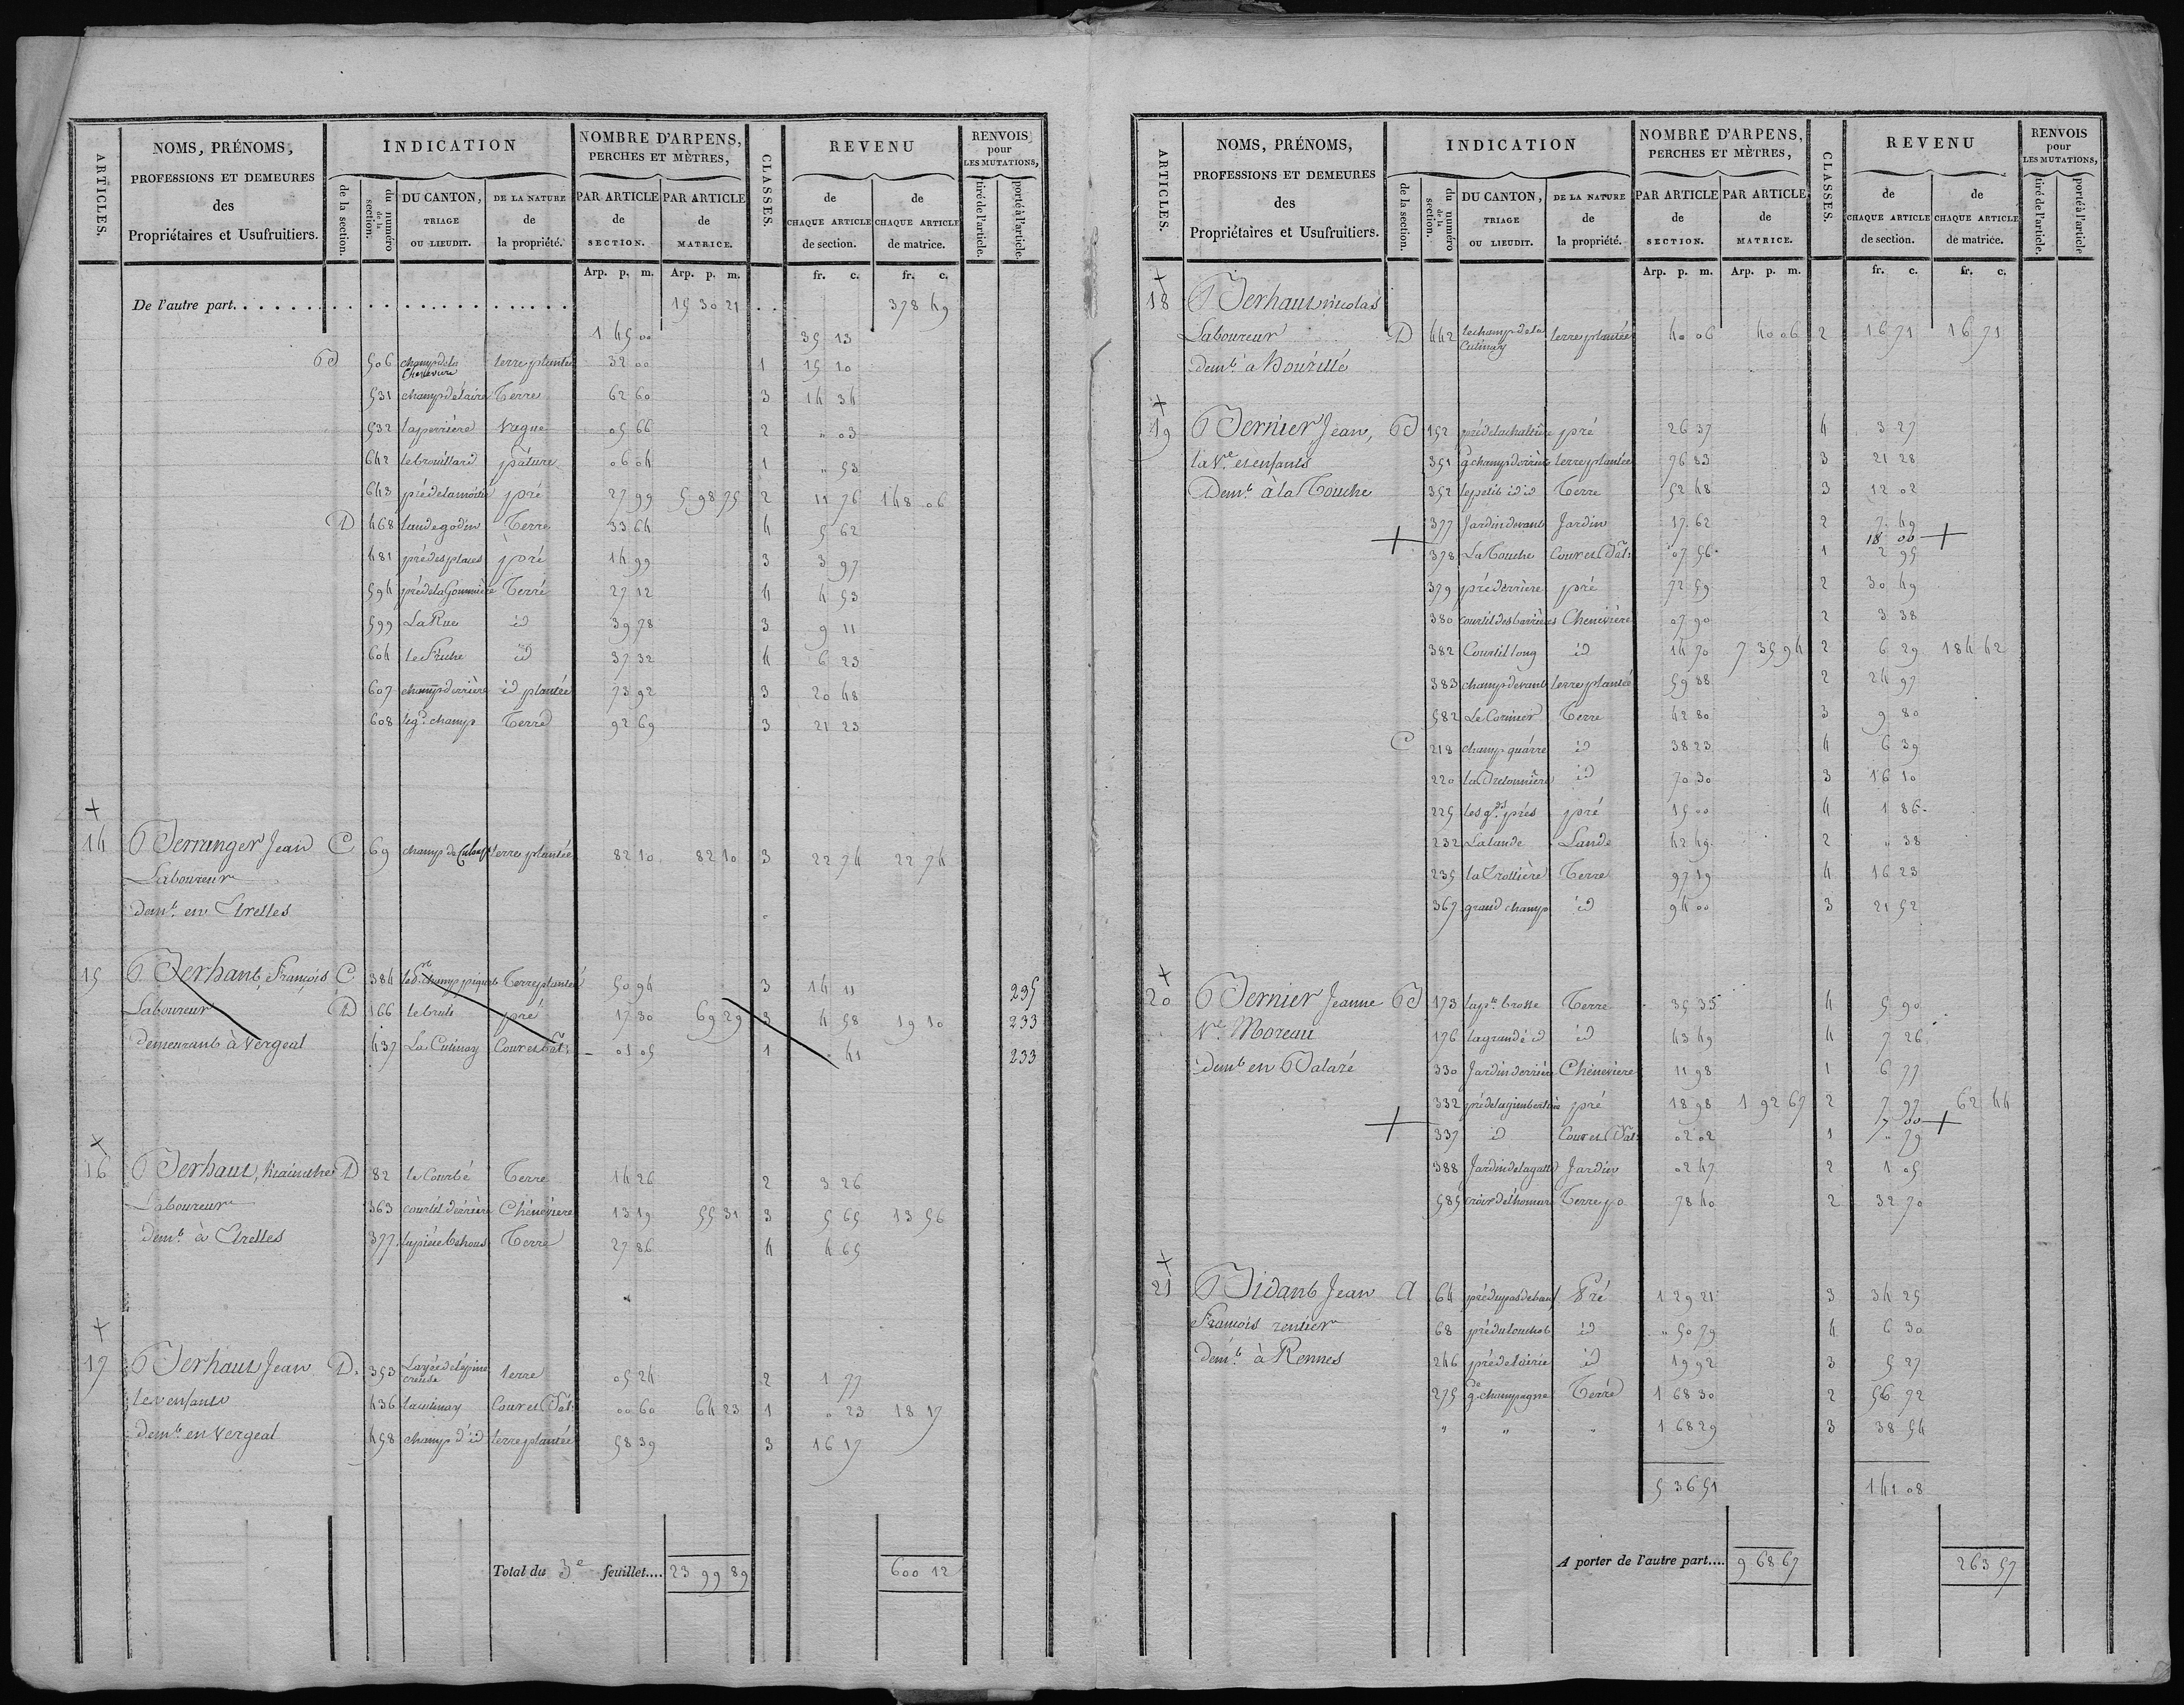 ARTICLES.
NOMS, PRÉNOMS,
PROFESSIONS ET DEMEURES
des
Propriétaires et Usufruitiers.
INDICATION
de la section.
du numéro de la section.
DU CANTON,
TRIAGE
OU LIEUDIT.
DE LA NATURE
de
la propriété.
NOMBRE D'ARPENS,
PERCHES ET MÈTRES,
PAR ARTICLE
de
SECTION.
PAR ARTICLE
de
MATRICE.
CLASSES.
REVENU
de
CHAQUE ARTICLE
de section.
de
CHAQUE ARTICLE
de matrice.
RENVOIS
pour
LES MUTATIONS,
tiré de l'article.
porté à l'article.
Arp. p. m. Arp. p. m. fr. c. fr. c.
De l'autre part. 15 30 21 378 49
1 45 00 35 13
B 506 champ de la Chenevière terre plantée 32 00 1 15 10
531 champ de l'aire Terre 62 60 3 14 34
532 la perrière Vague 05 66 2 " 03
642 le brouillard pâture 06 04 1 " 53
643 pré de la moitié pré 27 99 5 98 75 2 11 76 148 06
D 468 lande godin Terre 33 64 4 5 62
481 pré des places pré 14 99 3 3 97
594 pré de la Gommière Terre 27 12 4 4 53
599 La Rue id 39 78 3 9 11
604 le Friche id 37 32 4 6 23
607 champ derrière id plantée 73 92 3 20 48
608 le gd. champ Terre 92 69 3 21 23
+
14 Berranger Jean C 69 champ de terre plantée 82 10 82 10 3 22 74 22 74
Laboureur
demt. en Etrelles
15 Berhault, François C 384 champ piquet Terre plantée 50 94 3 14 11 235
Laboureur D 166 le brule pré 17 30 69 29 3 4 58 19 10 233
demeurant à Vergeal 437 La Cutinay Cour et Bât: 01 05 1 " 41 233
+
16 Berhaut, Mathurin D 82 le Courbé Terre 14 26 2 3 26
Laboureur 363 courtil derrière Chénevière 13 19 55 31 3 5 65 13 56
demt. à Etrelles 377 la pièce Terre 27 86 4 4 65
+
17 Berhaut Jean D. 353 La pée de l'épine creuse terre 05 24 2 1 77
les enfants 436 la cutinay Cour et Bât: 00 60 64 23 1 " 23 18 17
demt. en Vergeal 458 champ d'id terre plantée 58 39 3 16 17
Total du 3e feuillet.... 23 99 89 600 12
ARTICLES.
NOMS, PRÉNOMS,
PROFESSIONS ET DEMEURES
des
Propriétaires et Usufruitiers.
INDICATION
de la section.
du numéro de la section.
DU CANTON,
TRIAGE
OU LIEUDIT.
DE LA NATURE
de
la propriété.
NOMBRE D'ARPENS,
PERCHES ET MÈTRES,
PAR ARTICLE
de
SECTION.
PAR ARTICLE
de
MATRICE.
CLASSES.
REVENU
de
CHAQUE ARTICLE
de section.
de
CHAQUE ARTICLE
de matrice.
RENVOIS
pour
LES MUTATIONS,
tiré de l'article.
porté à l'article
Arp. p. m. Arp. p. m. fr. c. fr. c.
+
18 Berhaut nicolas
Laboureur D 442 le champ de la Cutinay terre plantée 40 06 40 06 2 16 71 16 71
demt. à
+
19 Bernier Jean, B 152 pré de la pré 26 37 4 3 27
la Ve. et enfants 351 gd champ derrière terre plantée 76 83 3 21 28
Demt. à la Touche 352 le petit id id Terre 52 48 3 12 02
377 Jardin devant Jardin 17 62 2 7 49
+ 18 00 +
378 La Touche Cour et Bât: 07 56 1 2 95
379 pré derrière pré 72 59 2 30 49
380 courtil des barrières Chenevière 07 90 2 3 38
382 Courtil long id 14 70 7 35 94 2 6 29 184 42
383 champ devant terre plantée 59 88 2 24 97
582 Le Cormier Terre 42 80 3 9 80
C 218 champ quarré id 38 23 4 6 39
220 la Bretonnière id 70 30 3 16 10
225 les gds. prés pré 15 00 4 1 86
232 La lande Lande 42 49 2 " 38
235 la Trottière Terre 97 19 4 16 23
367 grand champ id 94 00 3 21 52
+
20 Bernier Jeanne B 173 la pte brosse Terre 35 35 4 5 90
Ve. Moreau 176 la grande id id 43 49 4 7 26
demt en Balazé 330 Jardin derrière Chénevière 11 98 1 6 77
332 pré de la pré 18 98 1 92 67 2 7 97 62 44
+ 17 00 +
337 id Cour et Bât: 02 02 1 " 79
388 Jardin de la Jardin 02 47 2 1 05
585 Terre p. 78 40 2 32 70
+
21 Bidault Jean A 64 pré du pas Pré 1 29 21 3 34 25
François rentier 68 pré du id " 50 79 4 6 30
demt. à Rennes 246 pré de l'airie id 19 92 3 5 27
275 gde champagne Terre 1 68 30 2 56 72
" " " 1 68 29 3 38 54
5 36 51 141 08
A porter de l'autre part.... 9 68 67 263 57